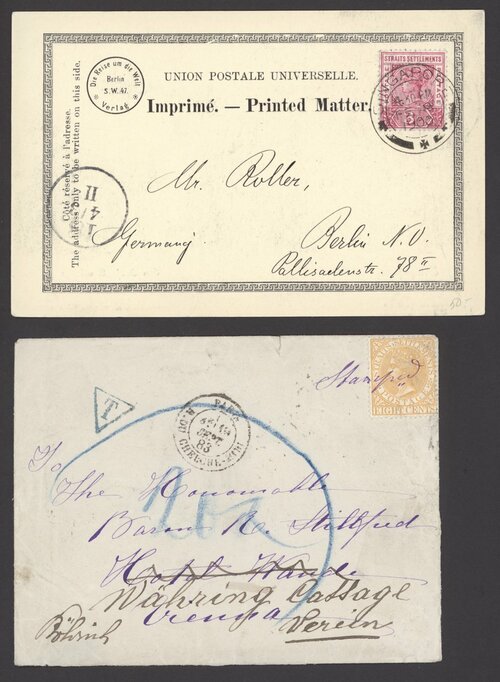 Die Reise um die Welt
Berlin
S.W. 47.
Verlag
UNION POSTALE UNIVERSELLE.
Imprimé. — Printed Matter.
STRAITS SETTLEMENTS
SINGAPORE
Côté réservé à l'adresse.
The address only to be written on this side.
Mr. Roller,
Germany
Berlin N.O.
Pallisadenstr. 78 II
50.-
T
Stamped
POSTAGE
EIGHT CENTS
PARIS
SEPT.
83
To
The Honourable
Baron R. Stillfred
Währing Cassage
Vienna
Verein